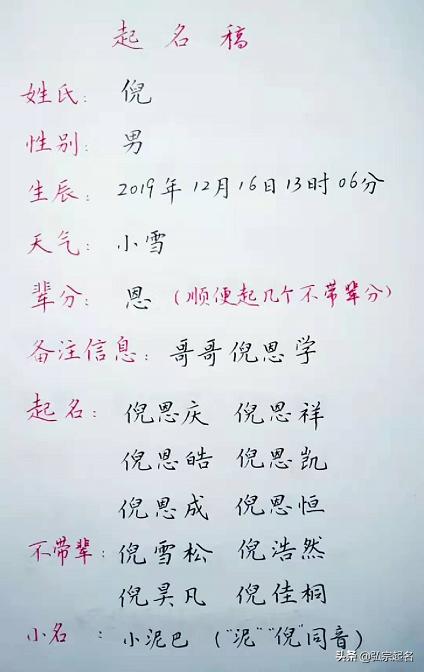 起名稿
姓氏：倪
性别：男
生辰：2019年12月16日13时06分
天气：小雪
辈分：恩（顺便起几个不带辈分）
备注信息：哥哥倪恩学
起名：倪恩庆 倪恩祥
倪恩皓 倪恩凯
倪恩成 倪恩恒
不带辈：倪雪松 倪浩然
倪昊凡 倪佳桐
小名：小泥巴（“泥”“倪”同音）
头条@弘宗起名